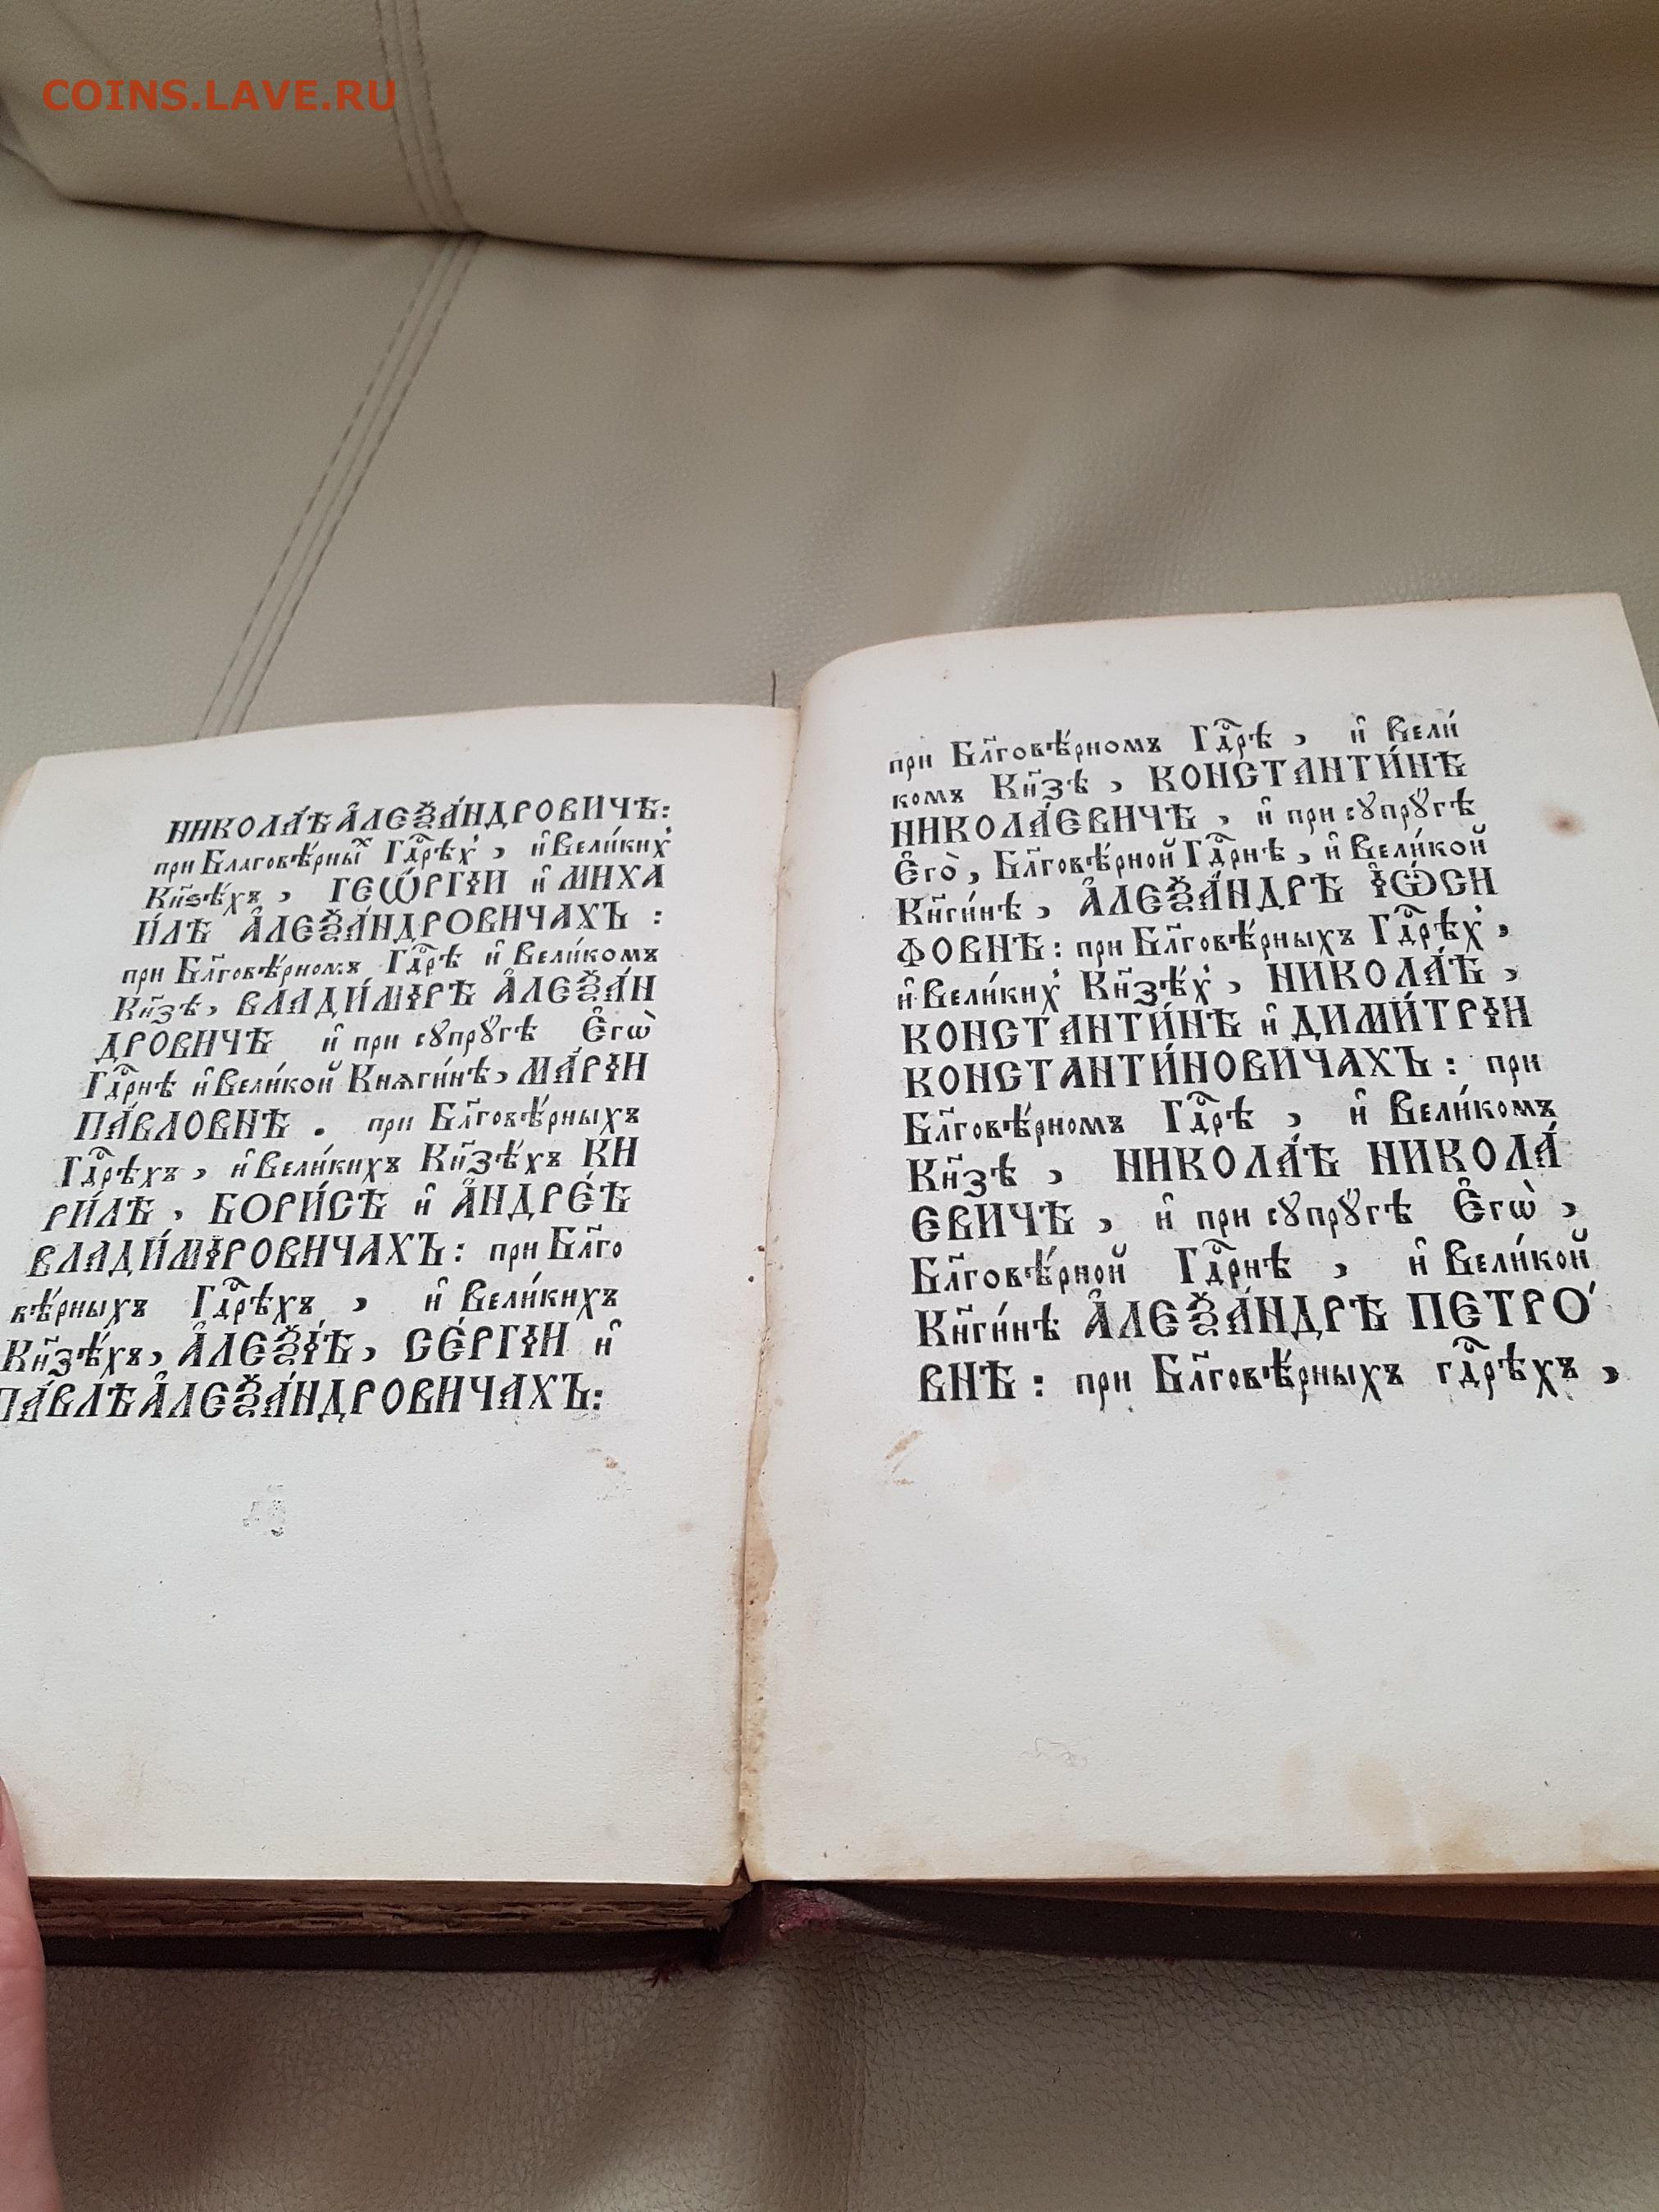 COINS.LAVE.RU
НИКОЛА́Ѣ А҆ЛЕѮА́НДРОВИЧѢ:
при Благовѣ́рныⷯ Гдⷭ҇рѣхъ, и҆ Вели́кихъ
Кн҃ѕѣ́хъ, ГЕѠ́РГІИ и҆ МИХА
И́ЛѢ А҆ЛЕѮА́НДРОВИЧАХЪ :
при Бл҃говѣ́рномъ Гдⷭ҇рѣ и҆ Вели́комъ
Кн҃зѣ, ВЛАДИ́МІРѢ А҆ЛЕѮА́Н
ДРОВИЧѢ и҆ при сꙋпрꙋ́гѣ Є҆гѡ̀
Гдⷭ҇рнѣ и҆ Вели́кой Кнѧги́нѣ, МАРІ́И
ПА́ВЛОВНѢ . при Бл҃говѣ́рныхъ
Гдⷭ҇рѣхъ, и҆ Вели́кихъ Кн҃зѣ́хъ КИ
РИ́ЛѢ, БОРИ́СѢ и҆ А҆НДРЕ́Ѣ
ВЛАДИ́МІРОВИЧАХЪ: при Бл҃го
вѣ́рныхъ Гдⷭ҇рѣхъ , и҆ Вели́кихъ
Кн҃зѣ́хъ, А҆ЛЕѮІ́Ѣ, СЕ́РГІИ и҆
ПА́ВЛѢ А҆ЛЕѮА́НДРОВИЧАХЪ:
при Бл҃говѣ́рномъ Гдⷭ҇рѣ , и҆ Вели́
комъ Кн҃зѣ , КОНСТАНТИ́НѢ
НИКОЛА́ЕВИЧѢ , и҆ при сꙋпрꙋ́гѣ
Є҆гѡ̀, Бл҃говѣ́рной Гдⷭ҇рнѣ, и҆ Вели́кой
Кн҃ги́нѣ, А҆ЛЕѮА́НДРѢ І҆Ѡ́СИ
ФОВНѢ: при Бл҃говѣ́рныхъ Гдⷭ҇рѣхъ,
и҆ Вели́кихъ Кн҃зѣ́хъ, НИКОЛА́Ѣ,
КОНСТАНТИ́НѢ и҆ ДИМИ́ТРІИ
КОНСТАНТИ́НОВИЧАХЪ: при
Бл҃говѣ́рномъ Гдⷭ҇рѣ , и҆ Вели́комъ
Кн҃зѣ , НИКОЛА́Ѣ НИКОЛА́
ЕВИЧѢ , и҆ при сꙋпрꙋ́гѣ Є҆гѡ̀ ,
Бл҃говѣ́рной Гдⷭ҇рнѣ , и҆ Вели́кой
Кн҃ги́нѣ А҆ЛЕѮА́НДРѢ ПЕТРО́
ВНѢ : при Бл҃говѣ́рныхъ гдⷭ҇рѣхъ ,